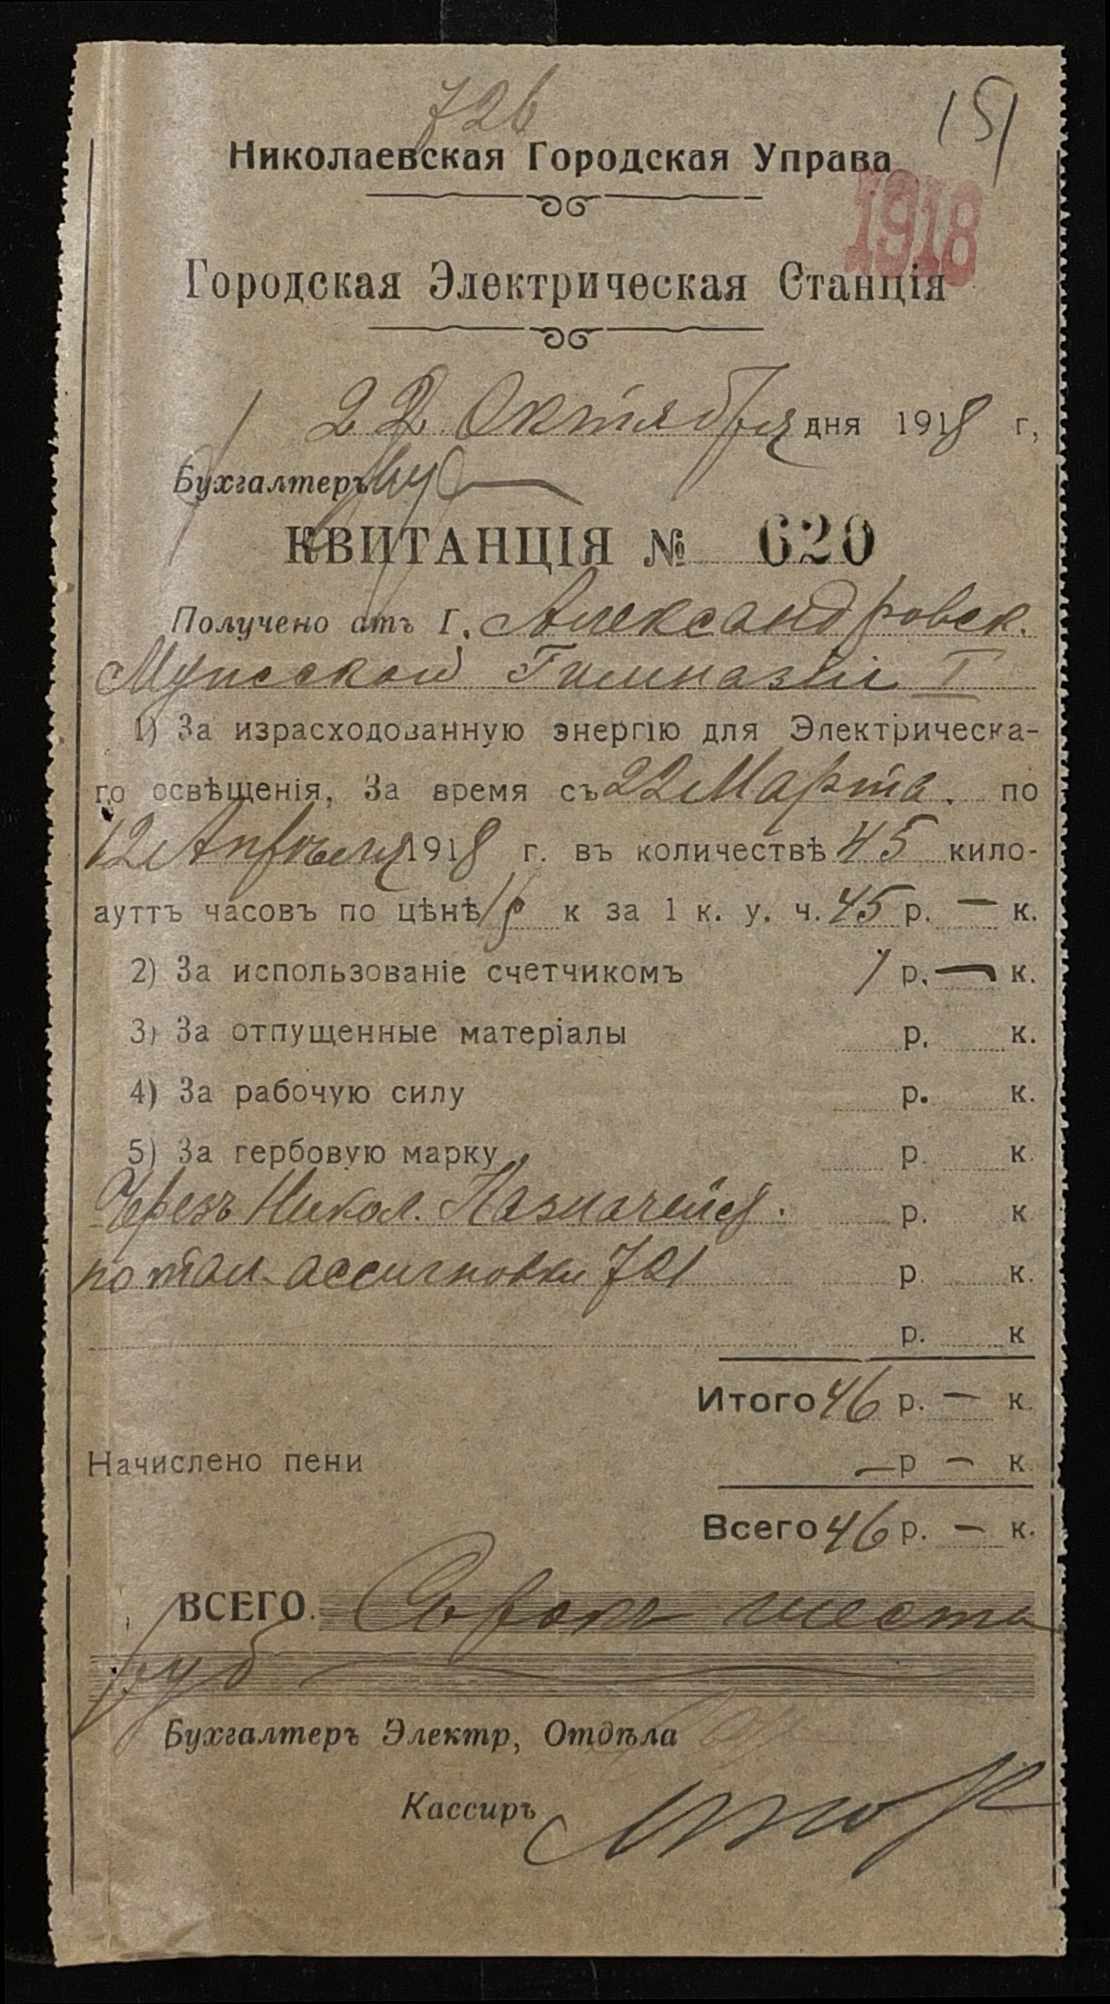 726
151
Николаевская Городская Управа
1918
Городская Электрическая Станція
22 Октября дня 1918 г,
Бухгалтеръ
КВИТАНЦІЯ № 620
Получено отъ Г. Александровск.
Мужской Гимназіи I
1) За израсходованную энергію для Электрическа-
го освѣщенія, За время съ 22 Марта. по
12 Апрѣля 1918 г. въ количествѣ 45 кило-
ауттъ часовъ по цѣнѣ 1р к за 1 к. у. ч. 45 р. — к.
2) За использованіе счетчикомъ 1 р. — к.
3) За отпущенные матеріалы р. к.
4) За рабочую силу р. к.
5) За гербовую марку р. к.
Черезъ Никол. Казначейс. р. к
по тал. ассигновки 721 р к.
р. к
Итого 46 р. — к.
Начислено пени — р — к.
Всего 46 р. — к.
ВСЕГО. Сорокъ шесть
руб
Бухгалтеръ Электр, Отдѣла
Кассиръ